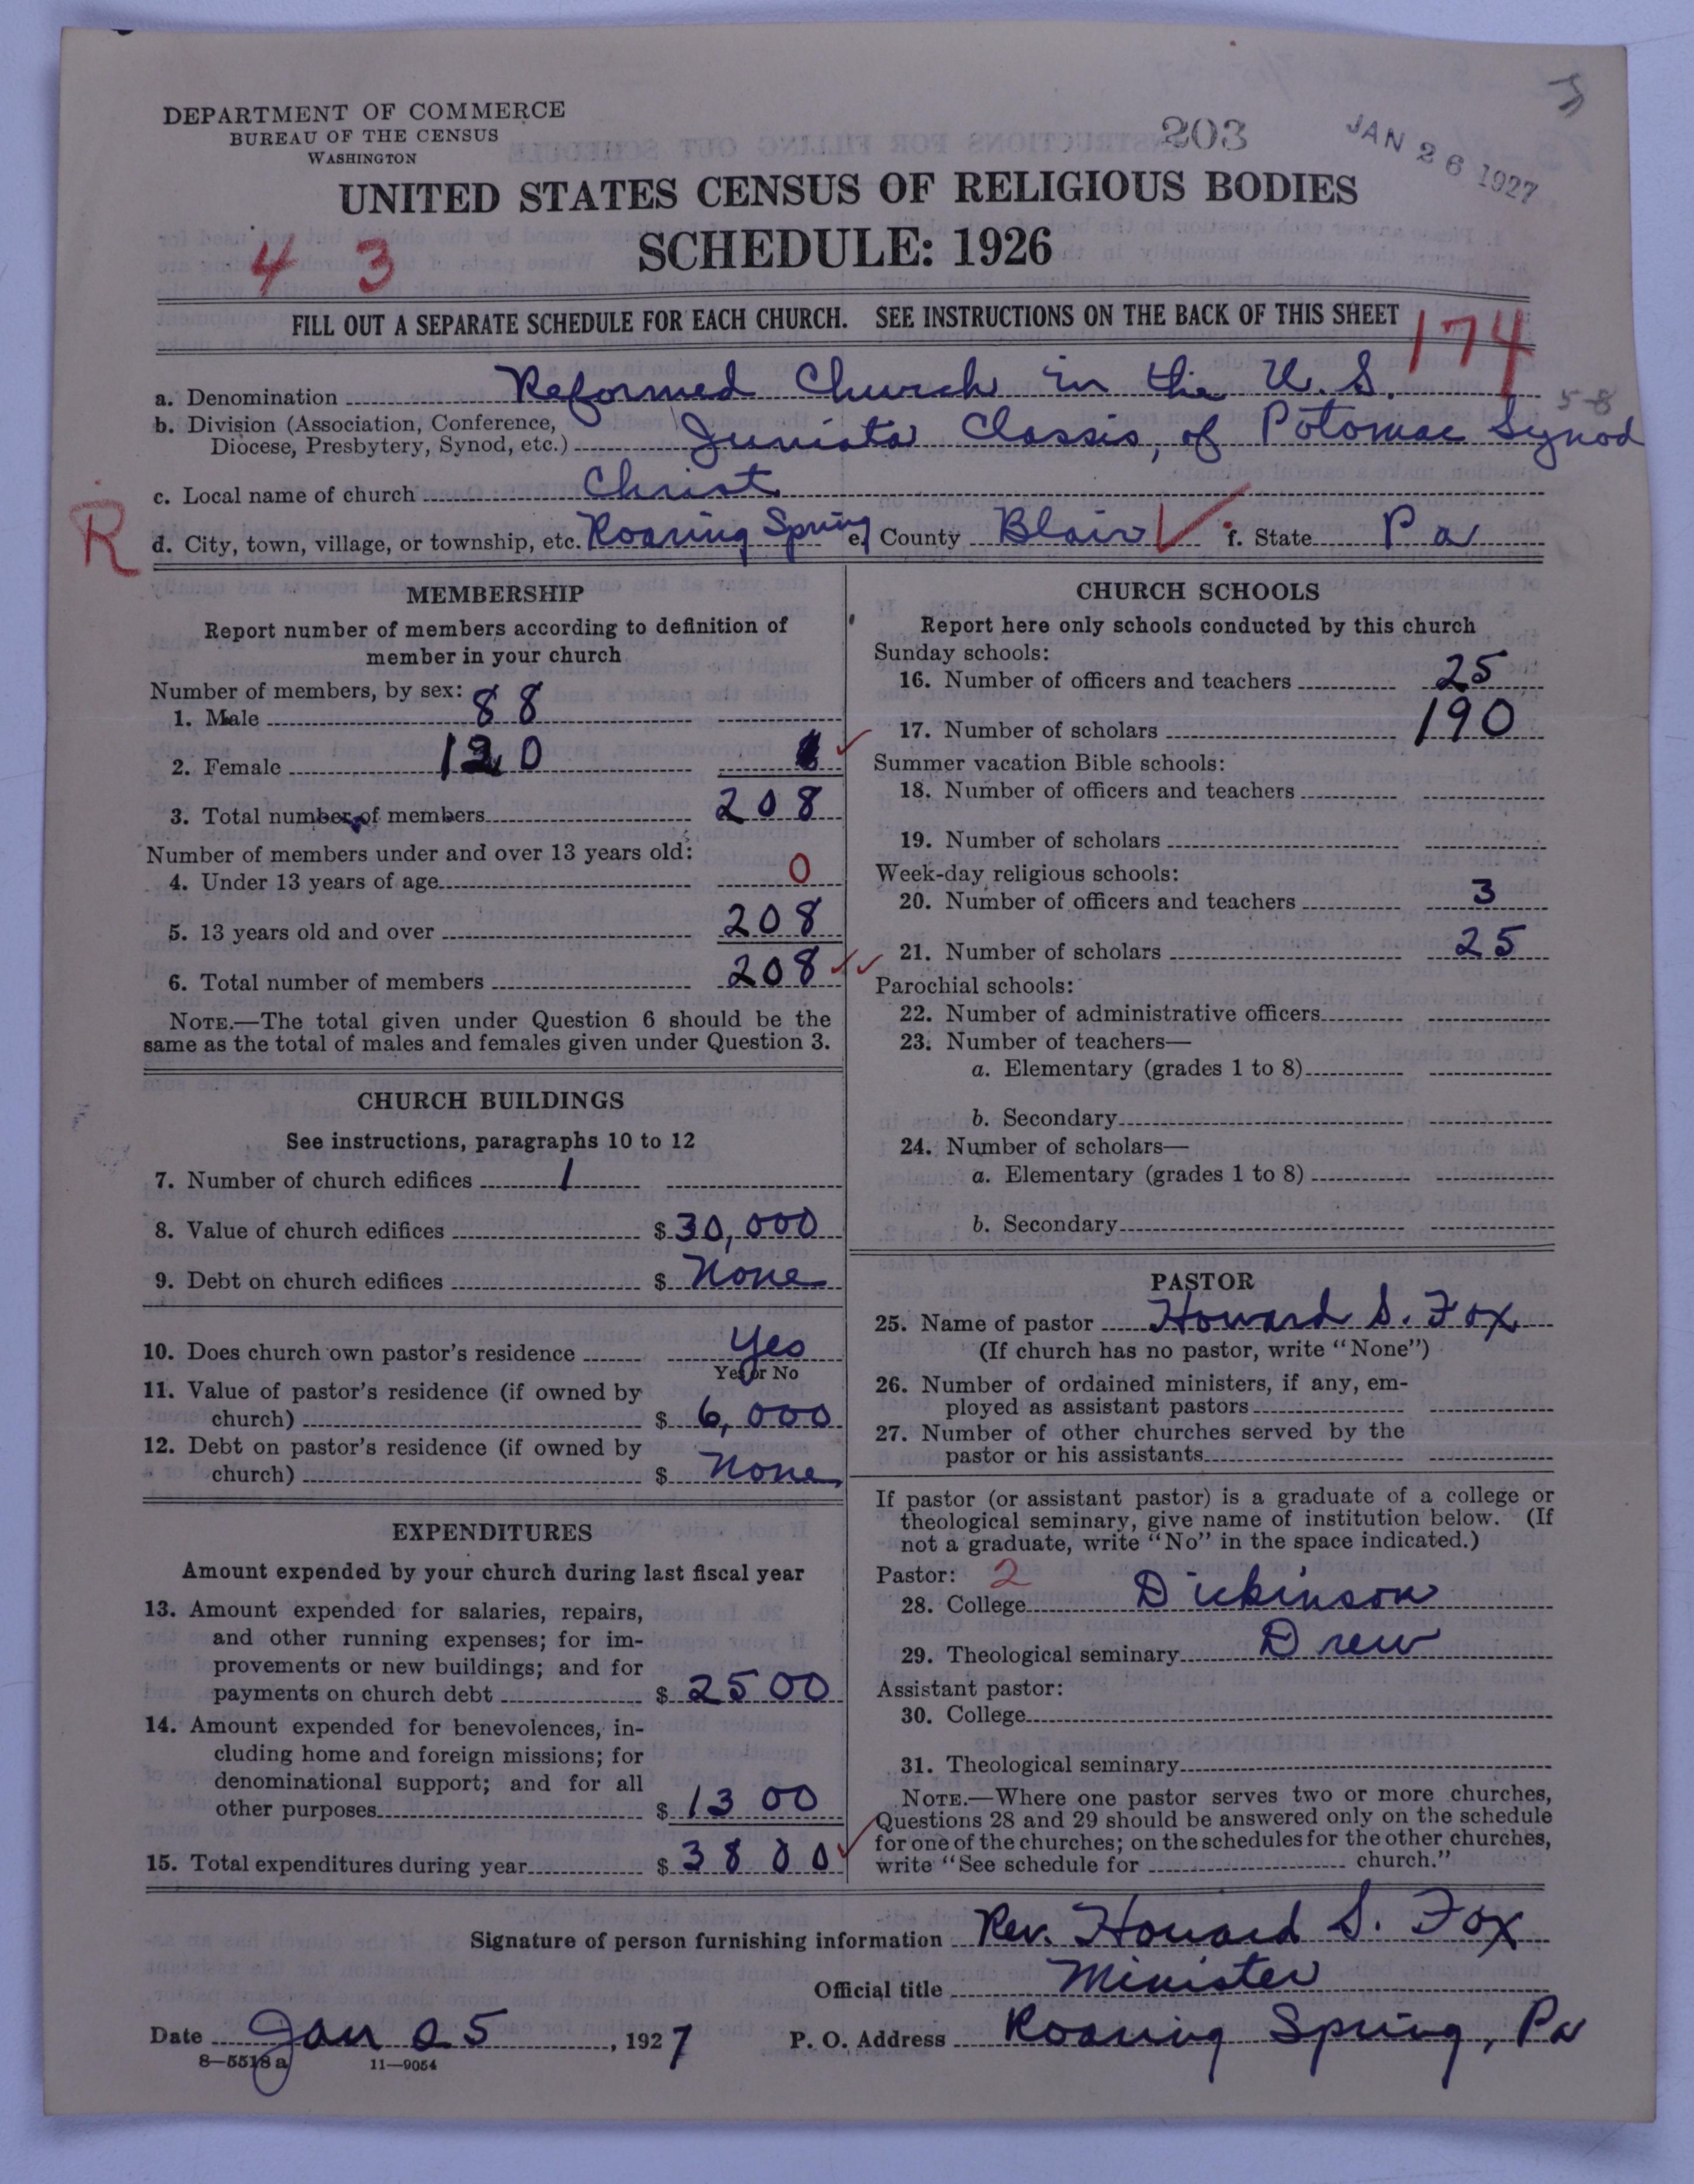 DEPARTMENT OF COMMERCE
BUREAU OF THE CENSUS
WASHINGTON
203
JAN 26 1927
UNITED STATES CENSUS OF RELIGIOUS BODIES
SCHEDULE: 1926
4 3
FILL OUT A SEPARATE SCHEDULE FOR EACH CHURCH. SEE INSTRUCTIONS ON THE BACK OF THIS SHEET
174
a. Denomination Reformed Church in the U. S.
5-8
b. Division (Association, Conference,
Diocese, Presbytery, Synod, etc.) Juniata Classis, of Potomac Synod
c. Local name of church Christ
R
d. City, town, village, or township, etc. Roaring Spring e. County Blair f. State Pa
MEMBERSHIP
Report number of members according to definition of
member in your church
Number of members, by sex:
1. Male 88
2. Female 120
3. Total number of members 208
Number of members under and over 13 years old:
4. Under 13 years of age 0
5. 13 years old and over 208
6. Total number of members 208
NOTE.—The total given under Question 6 should be the
same as the total of males and females given under Question 3.
CHURCH BUILDINGS
See instructions, paragraphs 10 to 12
7. Number of church edifices 1
8. Value of church edifices $ 30,000
9. Debt on church edifices $ None
10. Does church own pastor's residence Yes
Yes or No
11. Value of pastor's residence (if owned by
church) $ 6,000
12. Debt on pastor's residence (if owned by
church) $ None
EXPENDITURES
Amount expended by your church during last fiscal year
13. Amount expended for salaries, repairs,
and other running expenses; for im-
provements or new buildings; and for
payments on church debt $ 2500
14. Amount expended for benevolences, in-
cluding home and foreign missions; for
denominational support; and for all
other purposes $ 1300
15. Total expenditures during year $ 3800
CHURCH SCHOOLS
Report here only schools conducted by this church
Sunday schools:
16. Number of officers and teachers 25
17. Number of scholars 190
Summer vacation Bible schools:
18. Number of officers and teachers
19. Number of scholars
Week-day religious schools:
20. Number of officers and teachers 3
21. Number of scholars 25
Parochial schools:
22. Number of administrative officers
23. Number of teachers—
a. Elementary (grades 1 to 8)
b. Secondary
24. Number of scholars—
a. Elementary (grades 1 to 8)
b. Secondary
PASTOR
25. Name of pastor Howard S. Fox
(If church has no pastor, write "None")
26. Number of ordained ministers, if any, em-
ployed as assistant pastors
27. Number of other churches served by the
pastor or his assistants
If pastor (or assistant pastor) is a graduate of a college or
theological seminary, give name of institution below. (If
not a graduate, write "No" in the space indicated.)
Pastor: 2
28. College Dickinson
29. Theological seminary Drew
Assistant pastor:
30. College
31. Theological seminary
NOTE.—Where one pastor serves two or more churches,
Questions 28 and 29 should be answered only on the schedule
for one of the churches; on the schedules for the other churches,
write "See schedule for church."
Signature of person furnishing information Rev. Howard S. Fox
Official title Minister
Date Jan 25, 1927 P. O. Address Roaring Spring, Pa
8—5518 a 11—9054